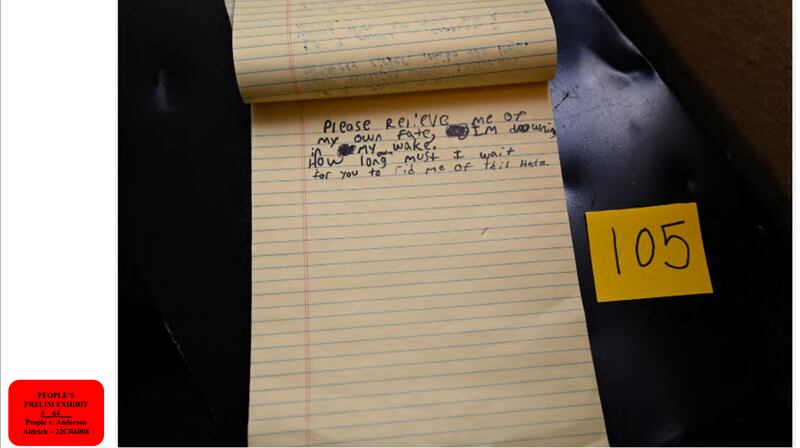 Please Relieve me of
my own Fate, IM drowning
in my own wake.
How long must I wait
for you to rid me of this Hate.
105
PEOPLE'S
PRELIM EXHIBIT
#__64__
People v. Anderson
Aldrich – 22CR6008